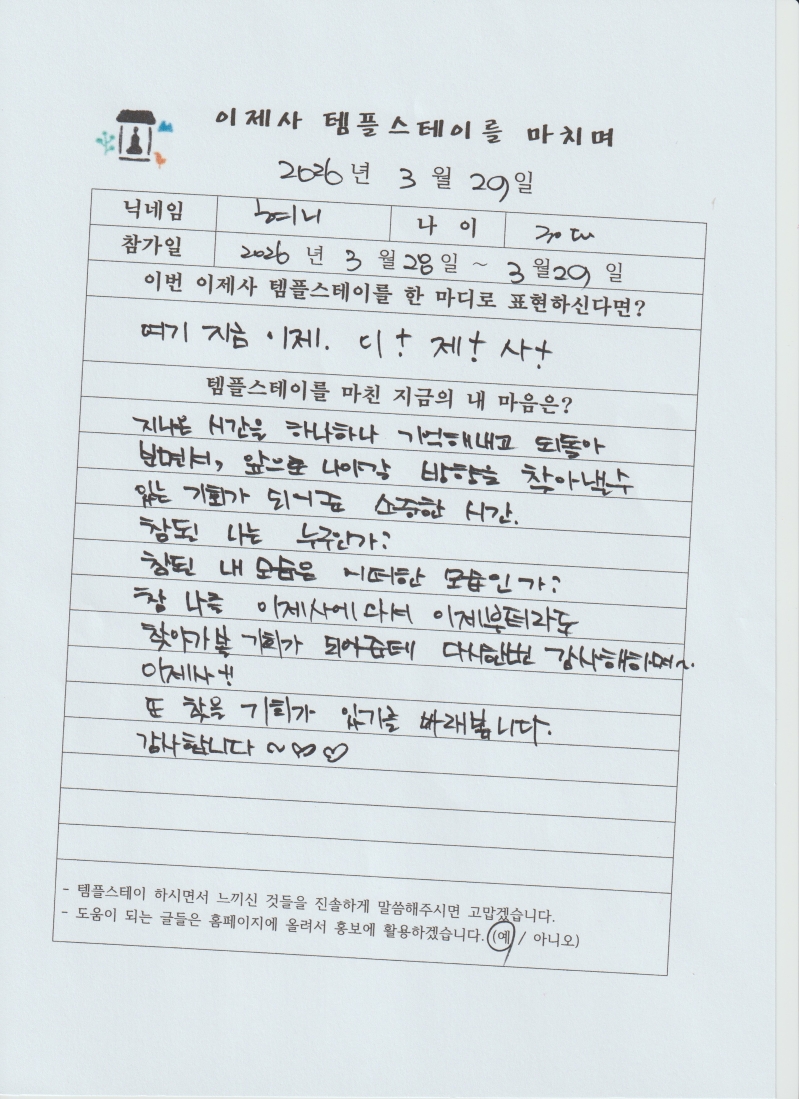 이제사 템플스테이를 마치며
2026년 3월 29일
닉네임 혜니 나 이 30대
참가일 2026년 3월 28일 ~ 3월 29일
이번 이제사 템플스테이를 한 마디로 표현하신다면?
여기 지금 이제. 이! 제! 사!
템플스테이를 마친 지금의 내 마음은?
지나온 시간을 하나하나 기억해내고 되돌아
보면서, 앞으로 나아갈 방향을 찾아낼수
있는 기회가 되어준 소중한 시간.
참된 나는 누구인가?
참된 내 모습은 어떠한 모습인가?
참 나를 이제사에 와서 이제부터라도
찾아가볼 기회가 되어준데 다시한번 감사해하며~.
이제사!!
또 찾을 기회가 있기를 바래봅니다.
감사합니다 ~♡♡
- 템플스테이 하시면서 느끼신 것들을 진솔하게 말씀해주시면 고맙겠습니다.
- 도움이 되는 글들은 홈페이지에 올려서 홍보에 활용하겠습니다. (예 / 아니오)